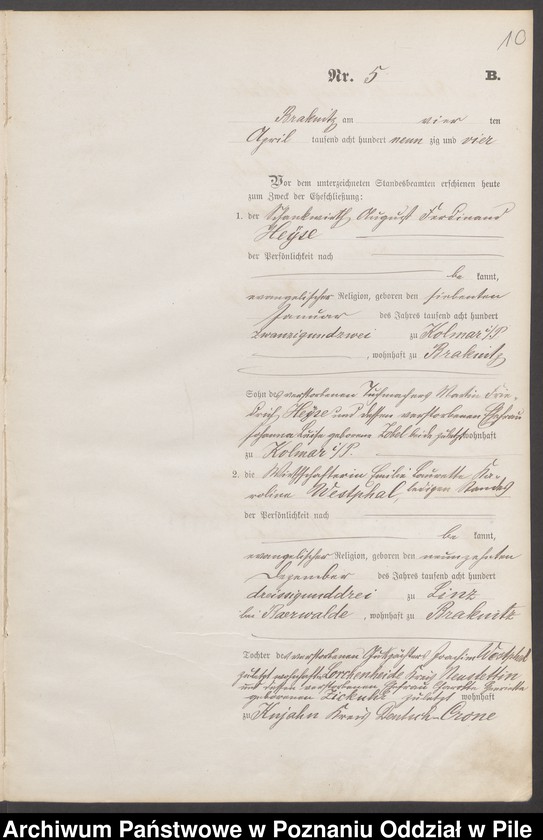 10
Nr. 5 B.
Braknitz am vier ten
April tausend acht hundert neun zig und vier
Vor dem unterzeichneten Standesbeamten erschienen heute
zum Zweck der Eheschließung:
1. der Schankwirth August Ferdinand
Heÿse
der Persönlichkeit nach
be kannt,
evangelischer Religion, geboren den siebenten
Januar des Jahres tausend acht hundert
zwanzigundzwei zu Kolmar i/P
, wohnhaft zu Braknitz
Sohn des verstorbenen Tuchmachers Martin Frie-
drich Heÿse und dessen verstorbenen Ehefrau
Johanna Luise geborene Zobel beide zuletzt wohnhaft
zu Kolmar i/P.
2. die Wirthschafterin Emilie Laurette Ka-
roline Westphal, ledigen Standes
der Persönlichkeit nach
be kannt,
evangelischer Religion, geboren den neunzehnten
Dezember des Jahres tausend acht hundert
dreisigunddrei zu Linz
bei Baerwalde, wohnhaft zu Braknitz
Tochter des verstorbenen Gutspächters Joachim Westphal
zuletzt wohnhaft Lorchenheide Kreis Neustettin
und dessen verstorbenen Ehefrau Henriette
geborenen zuletzt wohnhaft
zu Knjahn Kreis Deutsch-Crone
Archiwum Państwowe w Poznaniu Oddział w Pile